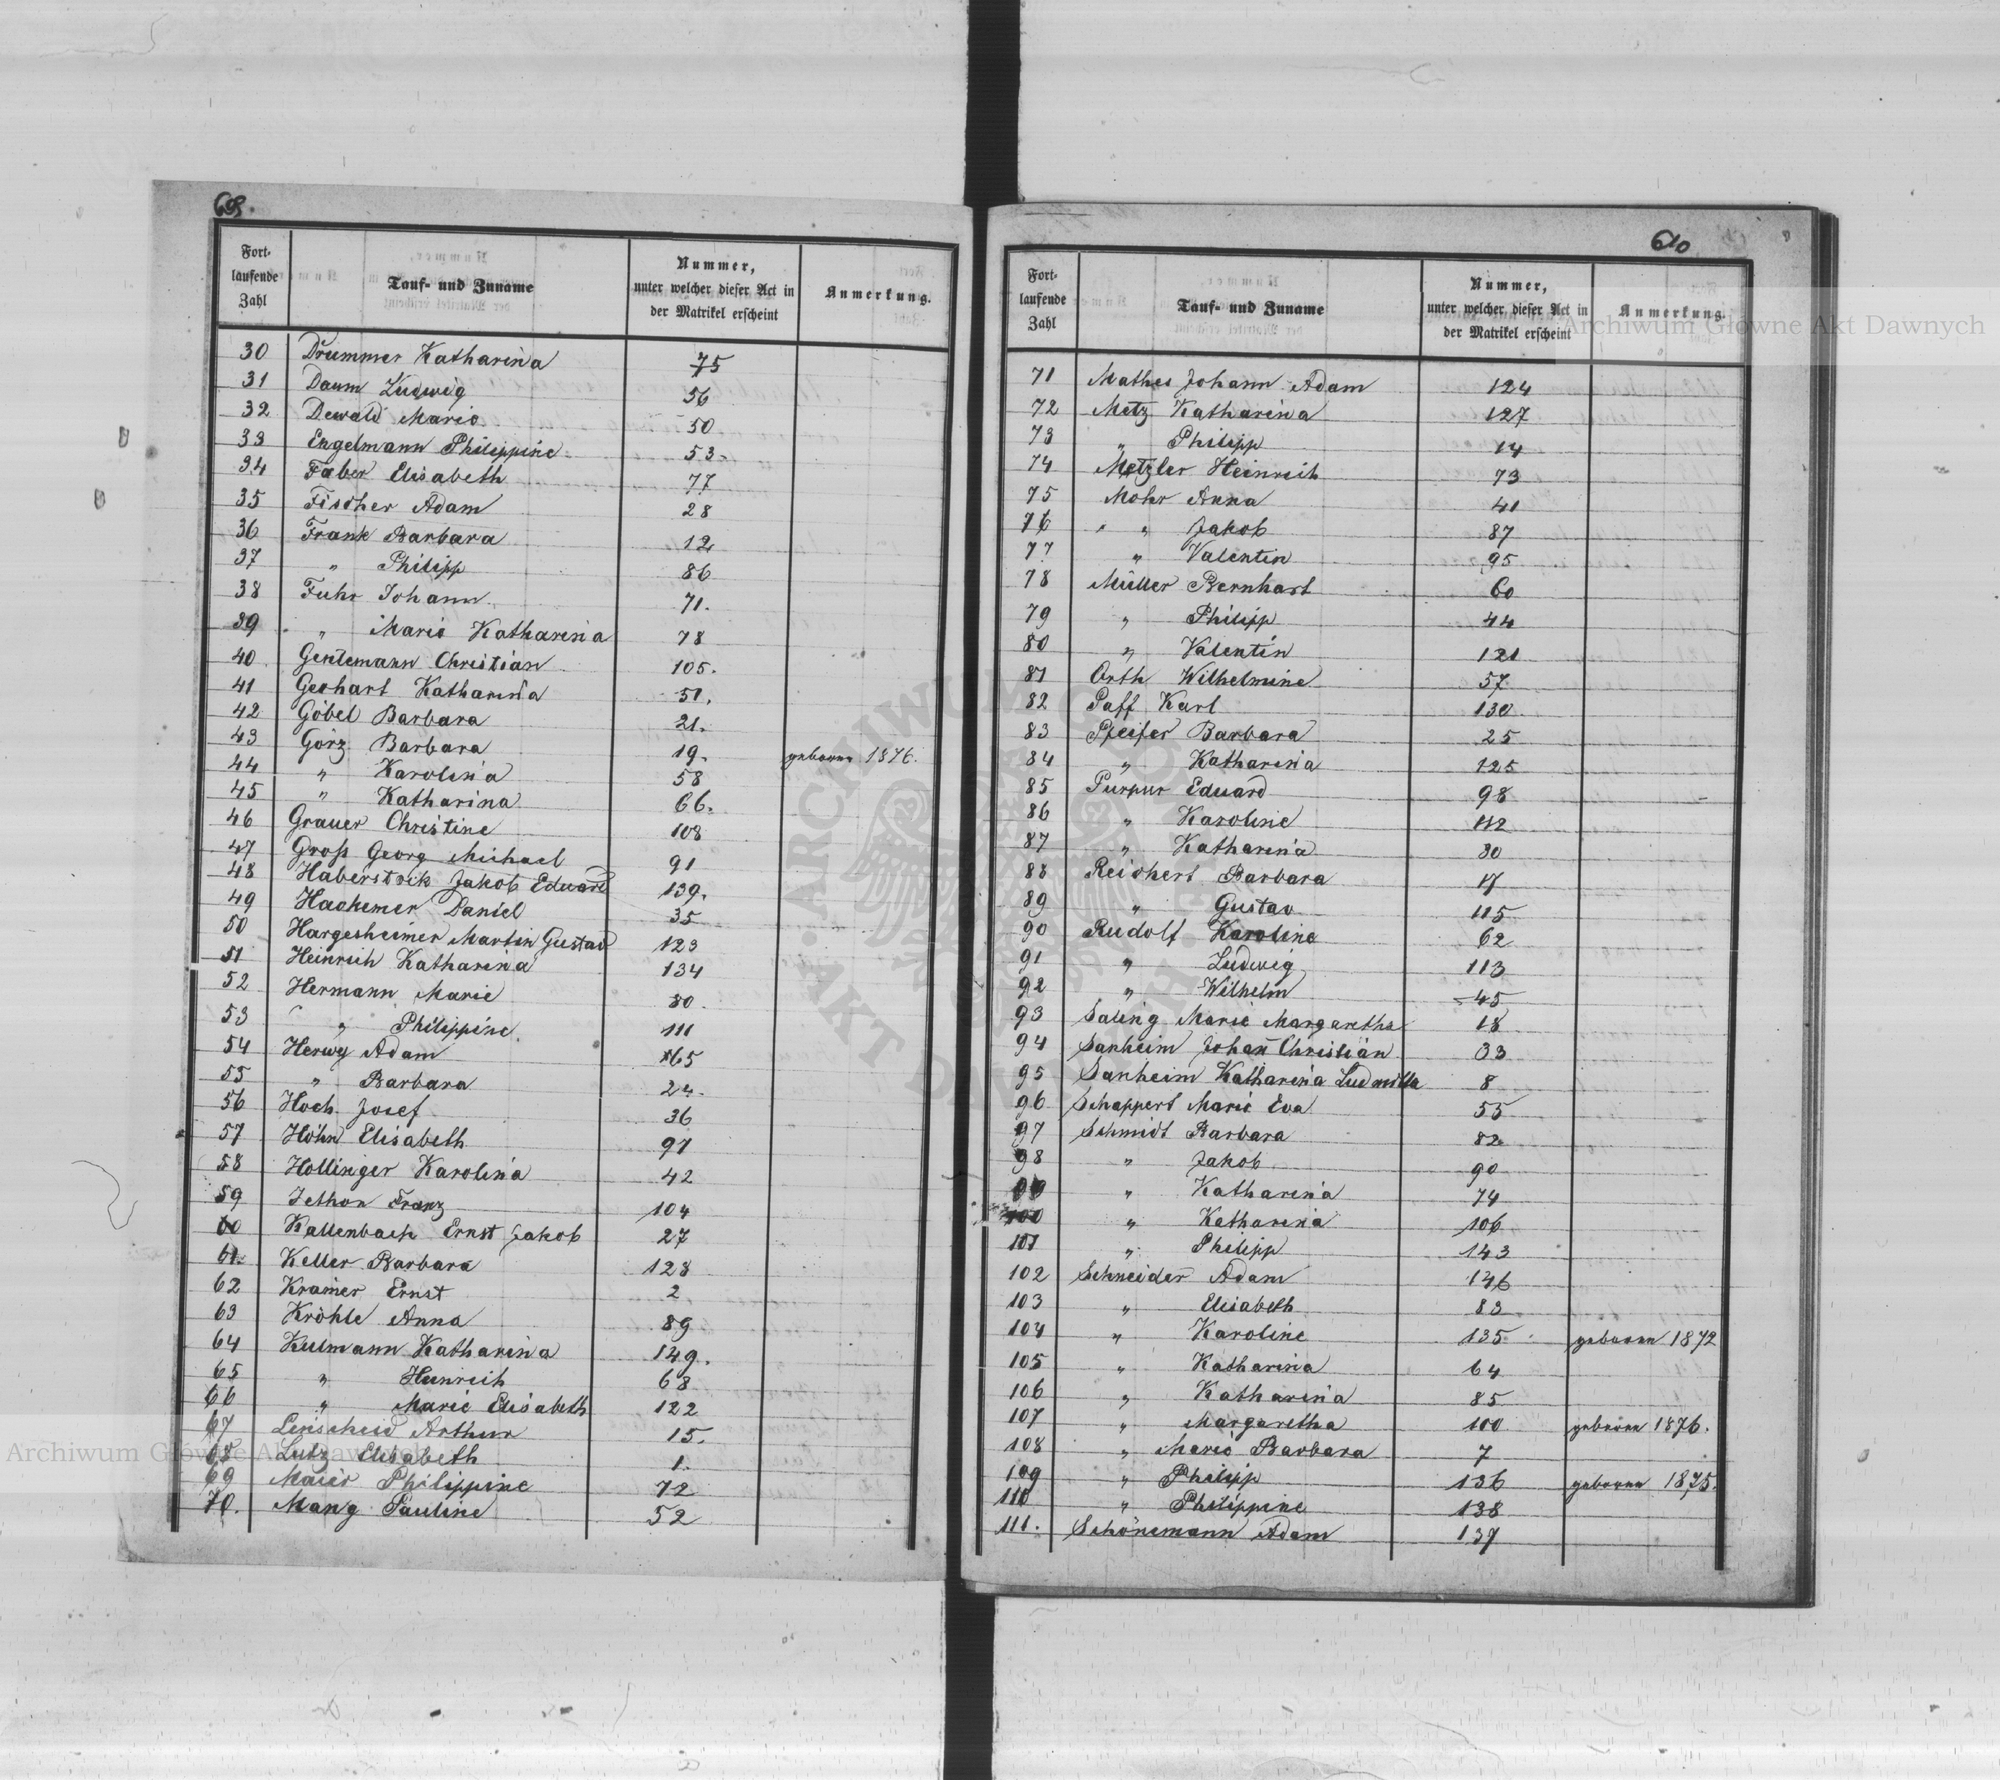 609.
Fort-
laufende
Zahl
Tauf- und Zuname
Nummer,
unter welcher dieser Act in
der Matrikel erscheint
Anmerkung.
30 Drummer Katharina 75
31 Daum Ludwig 56
32 Dewald Marie 50
33 Engelmann Philippine 53.
34 Faber Elisabeth 77
35 Fischer Adam 28
36 Frank Barbara 12
37 " Philipp 86
38 Fuhr Johann 71.
39 " Marie Katharina 78
40 Gentemann Christian 105.
41 Gerhart Katharina 51.
42 Göbel Barbara 21.
43 Görz Barbara 19. geboren 1876.
44 " Karolina 58
45 " Katharina 66.
46 Grauer Christine 108
47 Groß Georg Michael 91
48 Haberstock Jakob Eduard 139.
49 Hackemer Daniel 35
50 Hargesheimer Martin Gustav 123
51 Heinrich Katharina 134
52 Hermann Marie 80
53 " Philippine 111
54 Herwy Adam 65
55 " Barbara 24.
56 Hoch Josef 36
57 Höhn Elisabeth 97
58 Hollinger Karolina 42
59 Jethon Franz 104
60 Kallenbach Ernst Jakob 27
61. Keller Barbara 128
62 Kramer Ernst 2
63 Kröhle Anna 89
64 Kulmann Katharina 149.
65 " Heinrich 68
66 " Marie Elisabeth 122
67 Lenscheid Arthur 15.
68 Lutz Elisabeth 1.
69 Maier Philippine 72
70. Mang Pauline 52
610
Fort-
laufende
Zahl
Tauf- und Zuname
Nummer,
unter welcher dieser Act in
der Matrikel erscheint
Anmerkung.
71 Mathes Johann Adam 124
72 Metz Katharina 127
73 " Philipp 14
74 Metzler Heinrich 73
75 Mohr Anna 41
76 " " Jakob 87
77 " Valentin 95
78 Müller Bernhart 60
79 " Philipp 44
80 " Valentin 121
81 Orth Wilhelmine 57
82 Paff Karl 130
83 Pfeifer Barbara 25
84 " Katharina 125
85 Purpur Eduard 98
86 " Karoline 112
87 " Katharina 80
88 Reichert Barbara 17
89 " Gustav 115
90 Rudolf Karoline 62
91 " Ludwig 113
92 " Wilhelm 45
93 Saling Marie Margaretha 18
94 Sanheim Johan Christian 33
95 Sanheim Katharina Ludmilla 8
96 Schappert Marie Eva 55
97 Schmidt Barbara 82
98 " Jakob 90
99 " Katharina 74
100 " Katharina 106
101 " Philipp 143
102 Schneider Adam 146
103 " Elisabeth 83
104 " Karoline 135 geboren 1872
105 " Katharina 64
106 " Katharina 85
107 " Margaretha 100 geboren 1876.
108 " Marie Barbara 7
109 " Philipp 136 geboren 1875.
110 " Philippine 138
111. Schönemann Adam 137
Archiwum Główne Akt Dawnych
Archiwum Główne Akt Dawnych